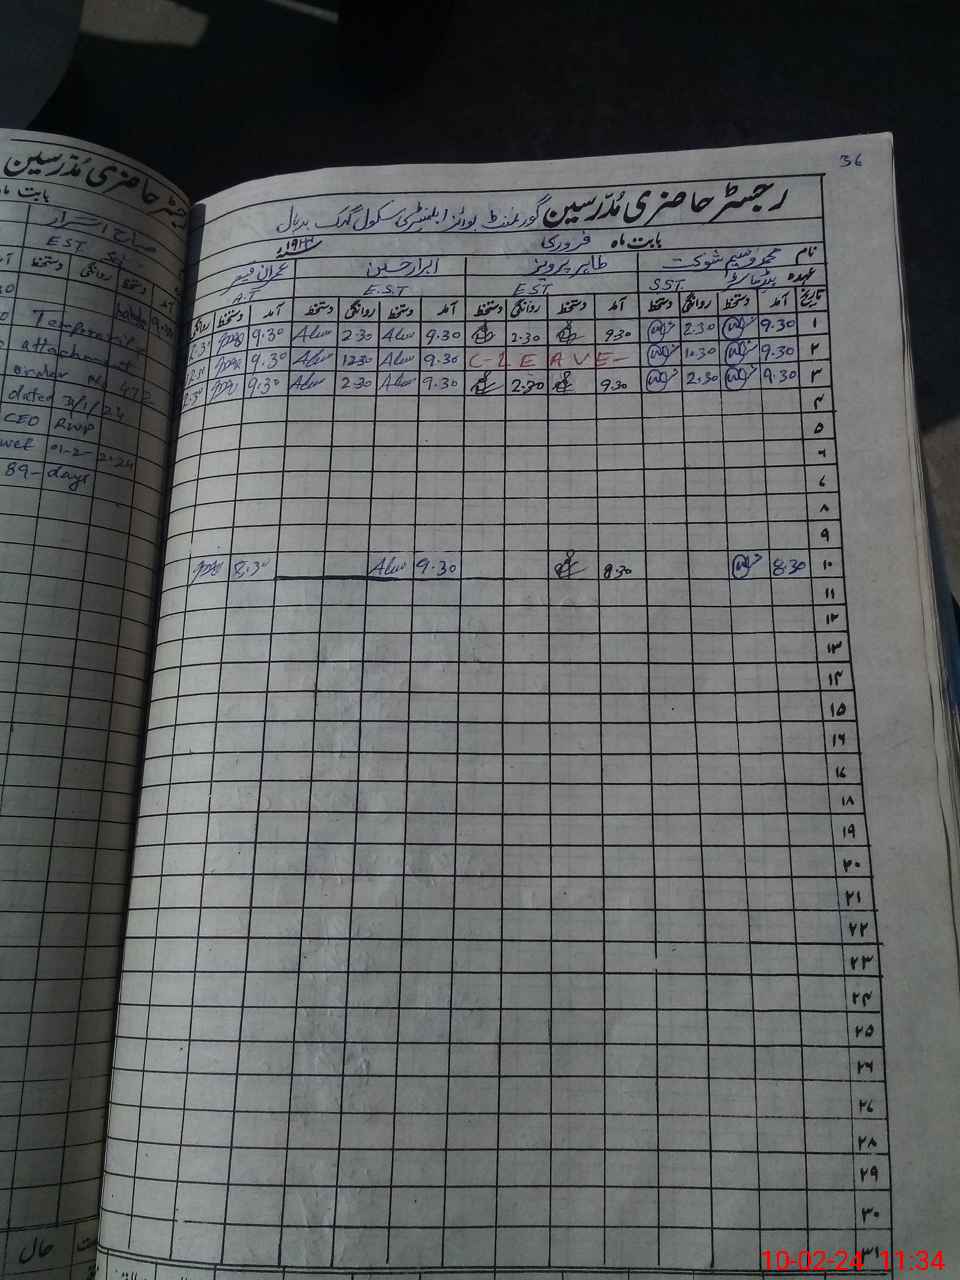 36
رجسٹر حاضری مُدّرسین گورنمنٹ بوائز ایلیمنٹری سکول
بابت ماہ فروری
نام محمد وسیم شوکت طاہر پرویز ابرار حسین
عہدہ SST EST E.S.T A.T
تاریخ آمد دستخط روانگی دستخط آمد دستخط روانگی دستخط آمد دستخط روانگی دستخط آمد دستخط روانگی
۱ 9.30 2.30 9.30 2.30 9.30 2.30 9.30
۲ 9.30 12.30 C-LEAVE- 9.30 12.30 9.30
۳ 9.30 2.30 9.30 2.30 9.30 2.30 9.30
۴
۵
۶
۷
۸
۹
۱۰ 8.30 8.30 9.30 8.30
۱۱
۱۲
۱۳
۱۴
۱۵
۱۶
۱۷
۱۸
۱۹
۲۰
۲۱
۲۲
۲۳
۲۴
۲۵
۲۶
۲۷
۲۸
۲۹
۳۰
۳۱
رجسٹر حاضری مُدّرسین
بابت ماہ
EST
آمد دستخط روانگی دستخط
Temporarily
attachment
order No 472
dated 31/1/24
CEO RWP
wef 01-2-2024
89- days
حال
10-02-24 11:34